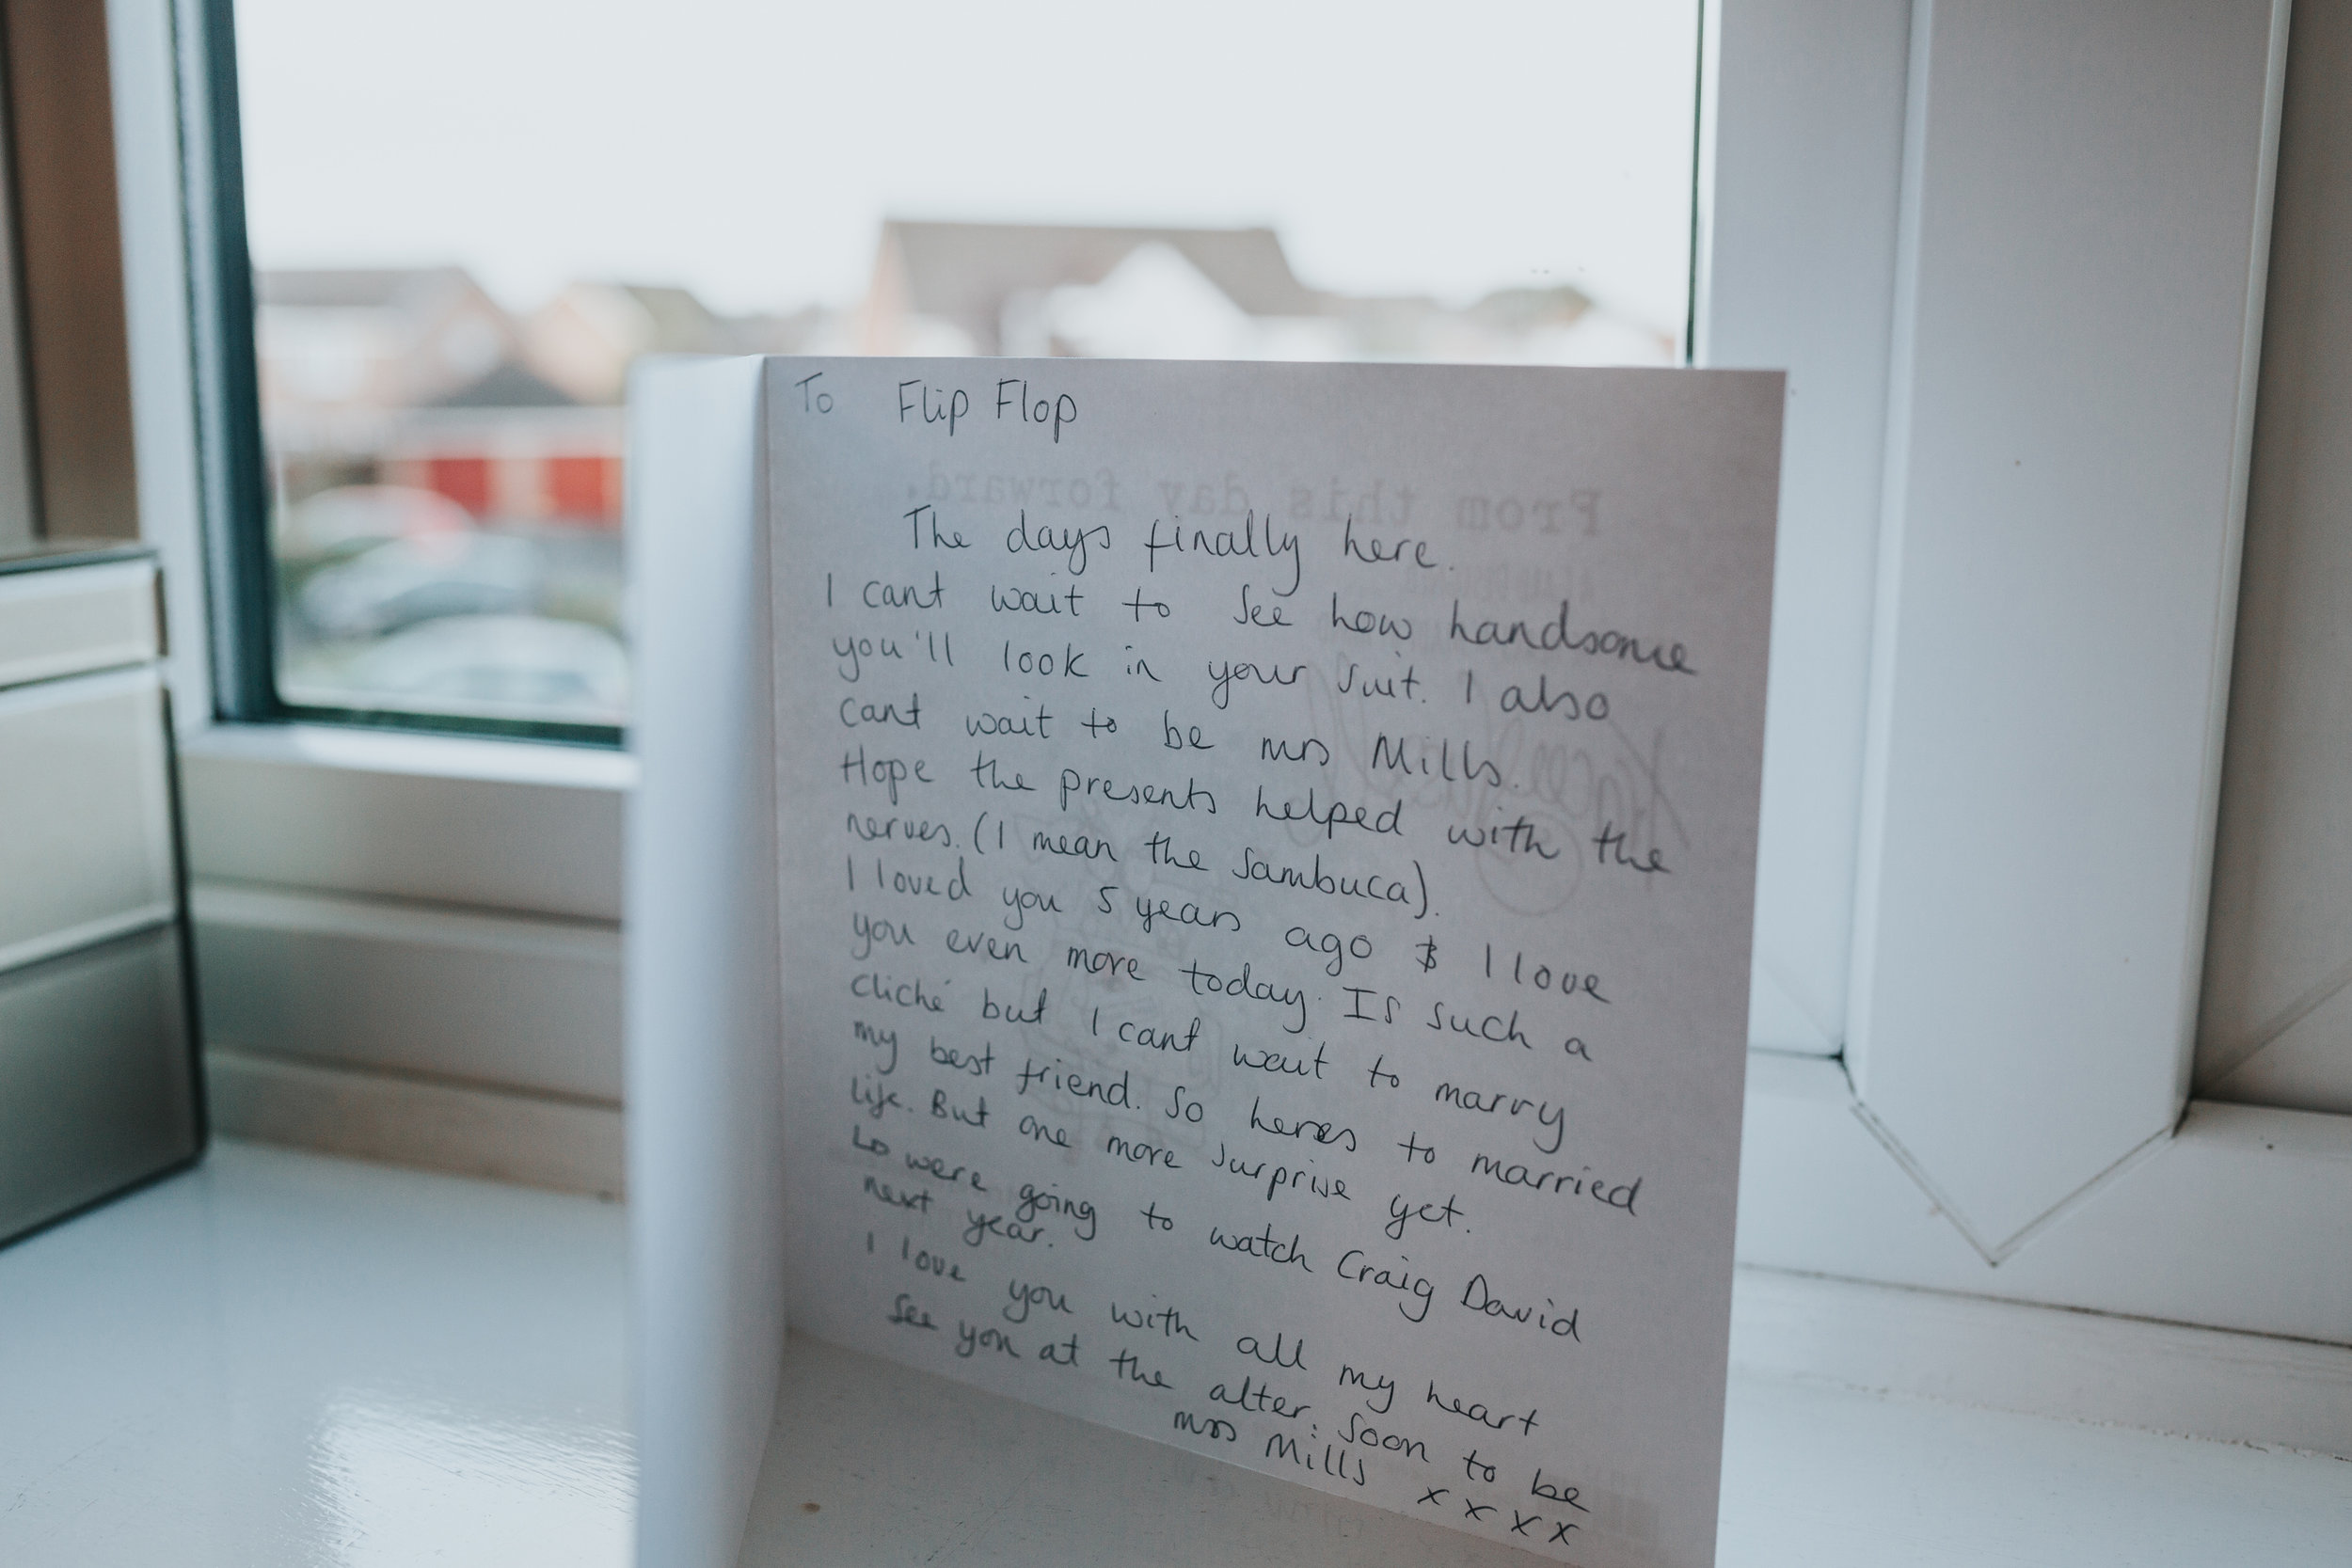 To Flip Flop
From this day forward.
The days finally here.
I cant wait to see how handsome
you'll look in your suit. I also
cant wait to be mrs Mills.
Hope the presents helped with the
nerves. (I mean the Sambuca).
I loved you 5 years ago & I love
you even more today. Is such a
cliché but I cant wait to marry
my best friend. So heres to married
life. But one more surprise yet.
were going to watch Craig David
next year.
I love you with all my heart
See you at the alter. Soon to be
mrs Mills x x x x